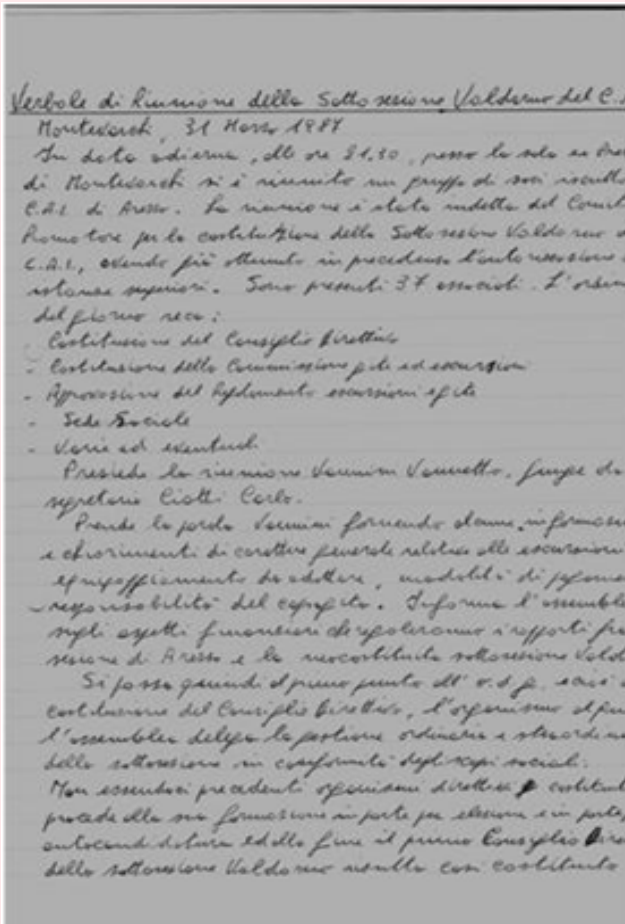 Verbale di Riunione della Sottosezione Valdarno del C.
Montevarchi, 31 Marzo 1987
In data odierna, alle ore 21,30, presso la sala ex
di Montevarchi si è riunito un gruppo di soci
C.A.I. di Arezzo. La riunione è stata indetta dal
Promotore per la costituzione della Sottosezione Valdarno
C.A.I., avendo già ottenuto in precedenza l'autorizzazione
istanze superiori. Sono presenti 37 associati. L'
del giorno reca:
Costituzione del Consiglio Direttivo
- Costituzione della Commissione gite ed escursioni
- Approvazione del Regolamento escursioni e gite
- Sede Sociale
- Varie ed eventuali
Presiede la riunione Vannini Vannetto, funge da
segretario Ciatti Carlo.
Prende la parola Vannini fornendo alcune
e chiarimenti di carattere generale relative alle escursioni
equipaggiamento da adottare, modalità di
responsabilità del capogita. Informa
sugli aspetti finanziari che regoleranno i rapporti
sezione di Arezzo e la neocostituita sottosezione
Si passa quindi al primo punto all' o.d.g.
costituzione del Consiglio Direttivo, l'organismo al
l'assemblea delega la gestione ordinaria e
della sottosezione in conformità degli scopi sociali.
Non essendoci precedenti organismi direttivi
procede alla sua formazione in parte per elezione e in parte
autocandidatura ed alla fine il primo Consiglio
della sottosezione Valdarno risulta così costituito